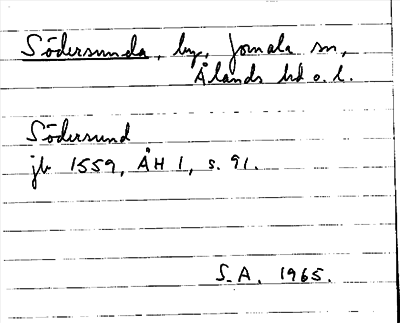 Södersunda, by, Jomala sn,
Ålands hd o. l.
Södersund
jb 1559, ÅH 1, s. 91.
S.A. 1965.